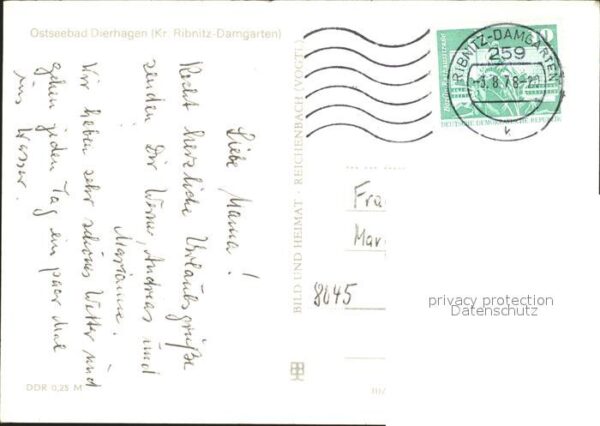 Ostseebad Dierhagen (Kr. Ribnitz-Damgarten)
Liebe Mama!
Recht herzliche Urlaubsgrüße
senden Dir Werner, Andreas und
Marianne.
Wir haben sehr schönes Wetter und
gehen jeden Tag ein paar Mal
ins Wasser.
DDR 0,25 M
BILD UND HEIMAT · REICHENBACH (VOGTL)
RIBNITZ-DAMGARTEN
259
-3.8.78-20
k
DEUTSCHE DEMOKRATISCHE REPUBLIK
Fra
Mar
8645
privacy protection
Datenschutz